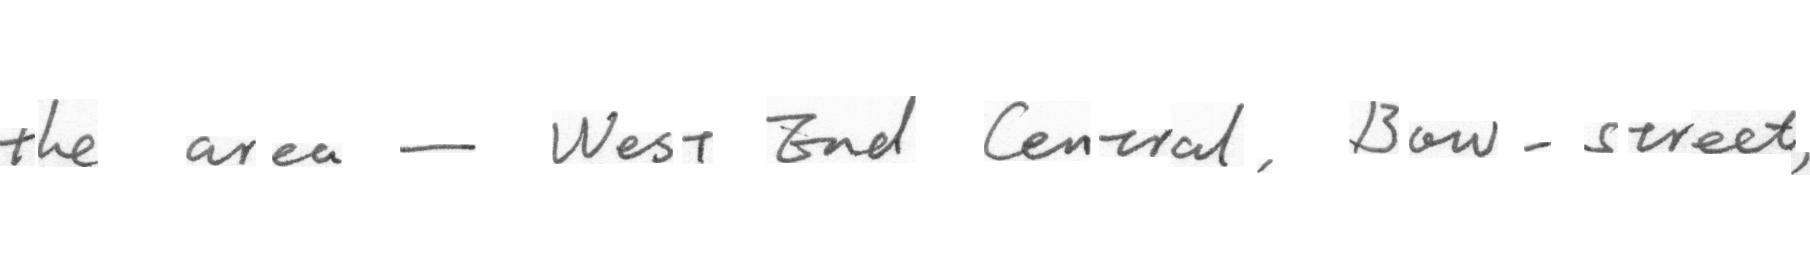 the area — West End Central, Bow-street,